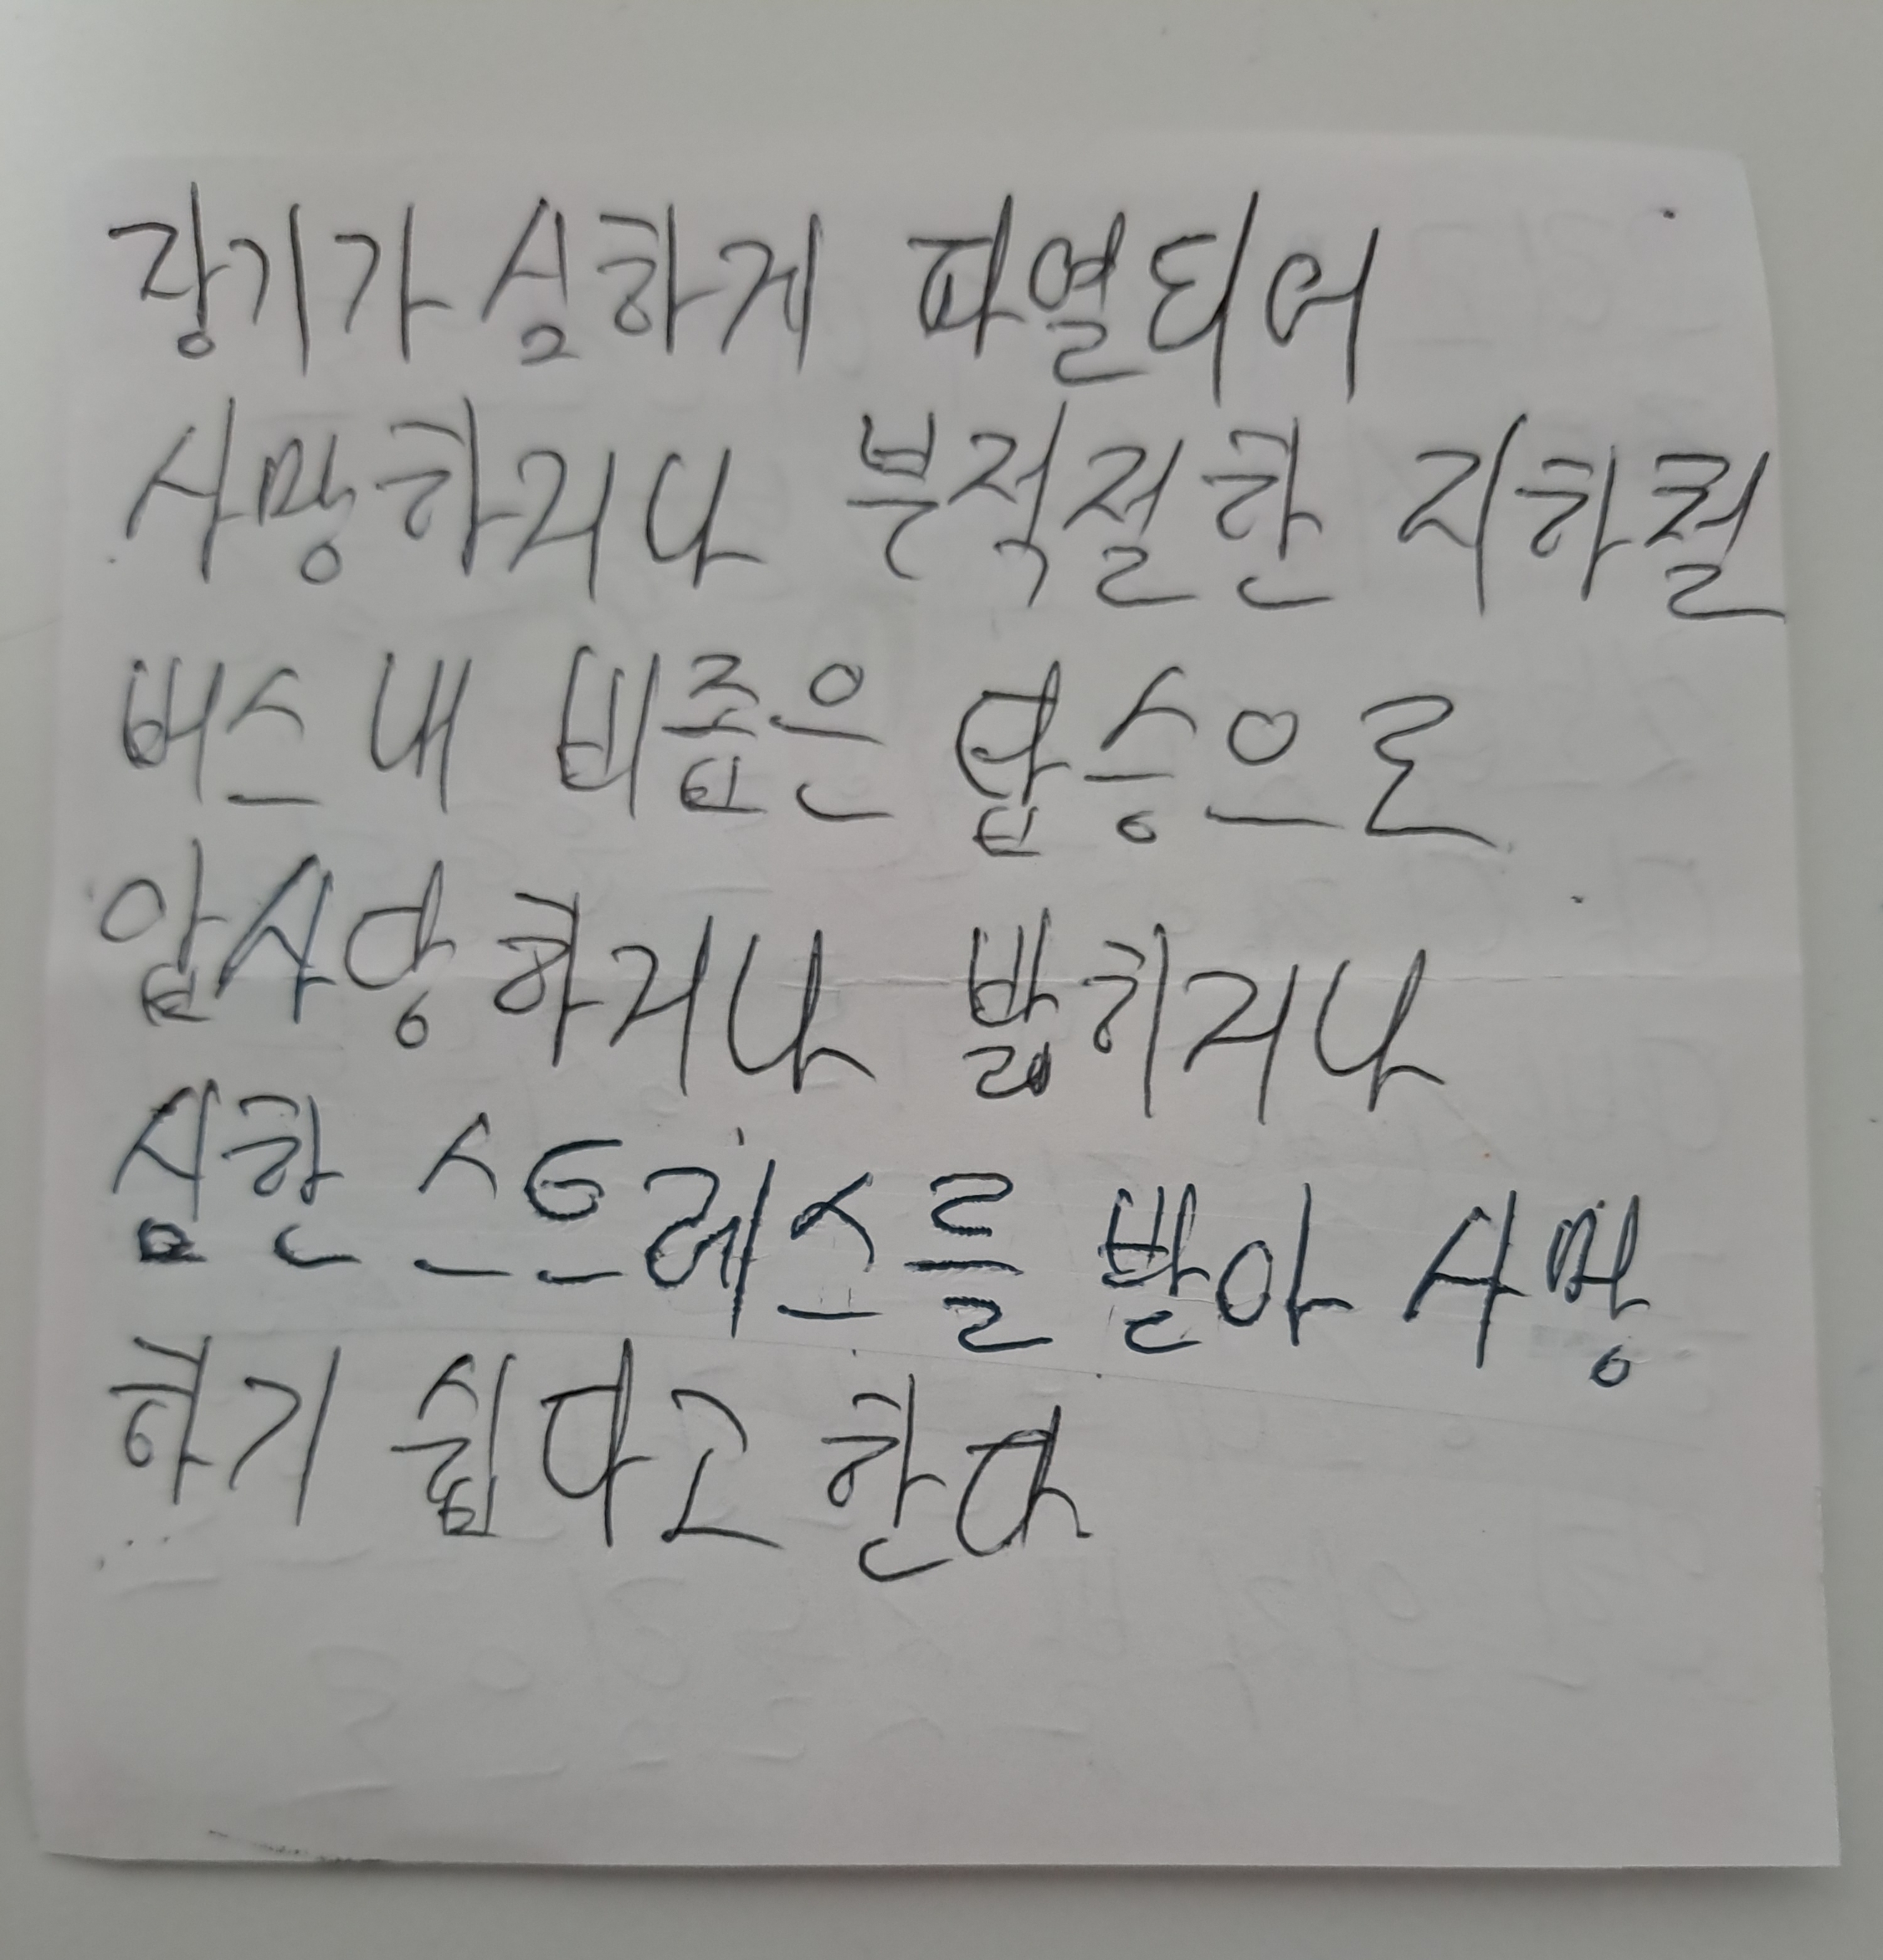 장기가 심하게 파열되어
사망하거나 부적절한 지하철
버스 내 비좁은 탑승으로
압사당하거나 밟히거나
심한 스트레스를 받아 사망
하기 쉽다고 한다